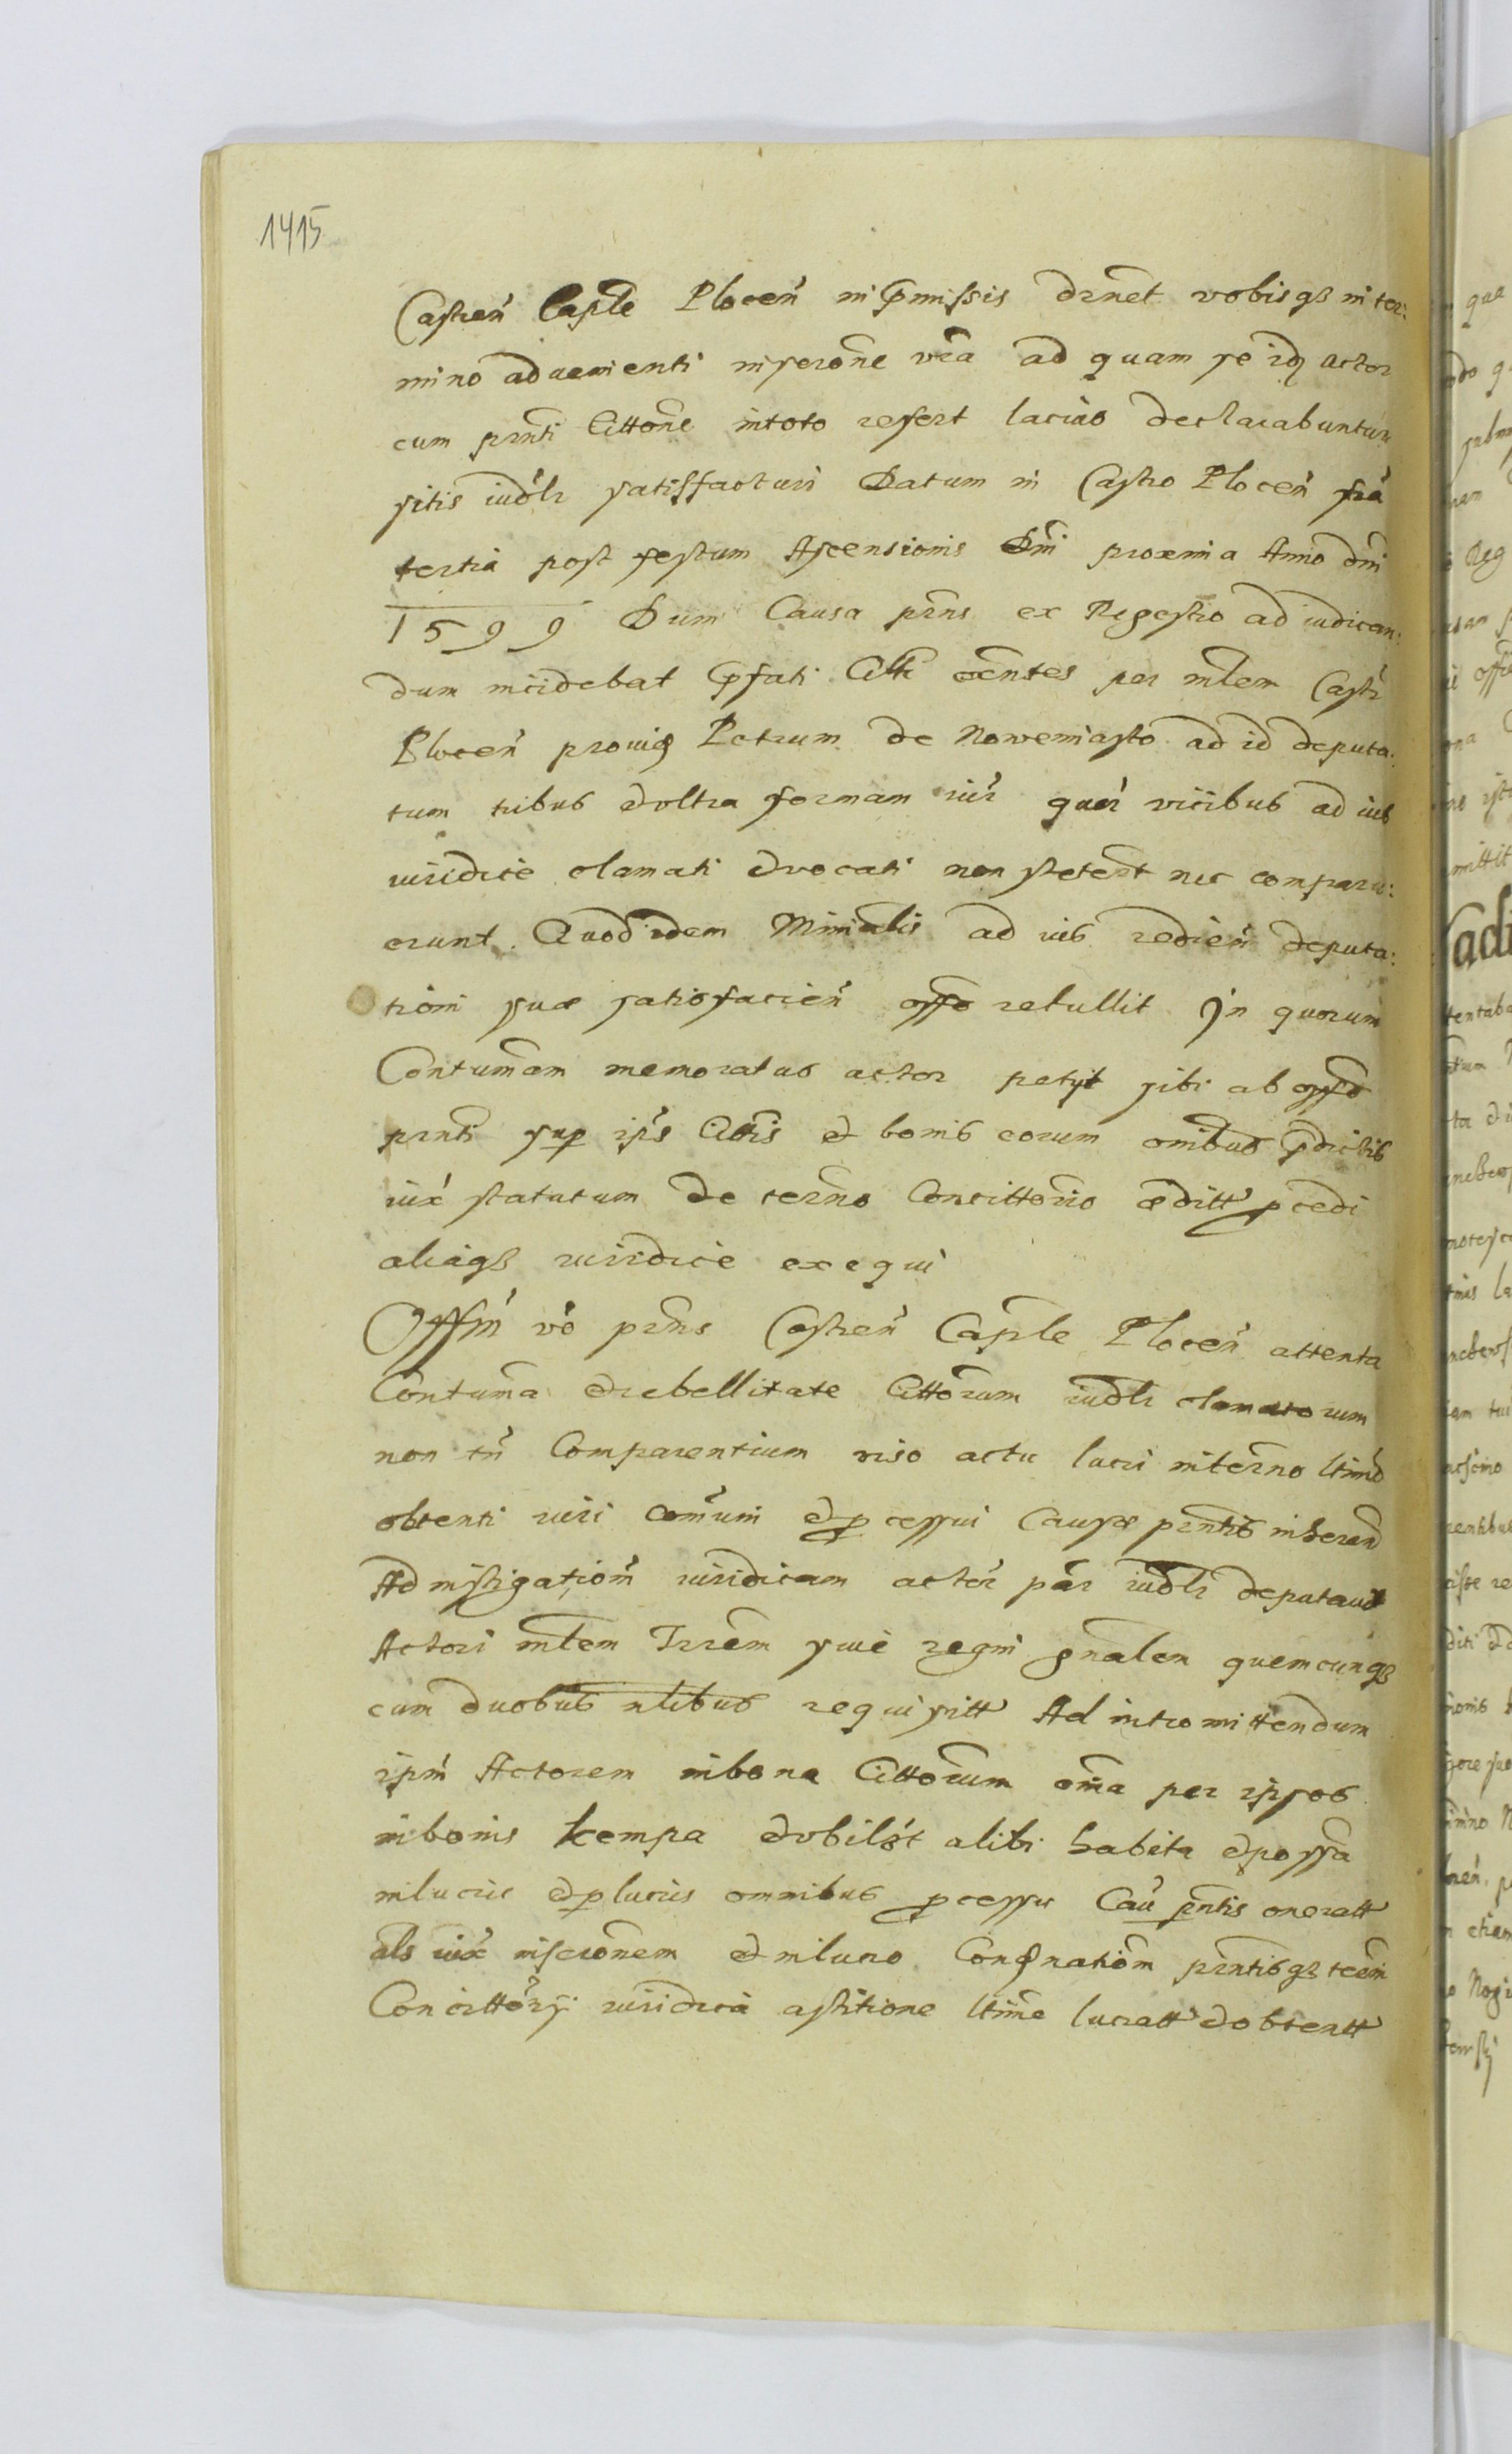 1415
Castren̄ Capłe Plocen̄ in p̄missis decrnet vobisq3 in ter:
mino aduenienti inscrone vr̄a ad quam se idq actor
cum prnti Cittone in toto refert lacius declarabuntur
sitis iudlr satisfacturi Datum in Castro Plocen̄ fr̄a
tertia post festum Ascensionis Dni proxima Anno dni
1599 Dum Causa prns ex Regestro ad iudican:
dum incidebat p̄fati Citti oēs entes per mlem Castr̄
Plocen̄ prouid Petrum de Nowemiasto ad id deputa:
tum tribus et vltra formam iur̄ quar̄ vicibus ad ius
iuridice clamati et vocati non stetert nec comparu:
erunt. Quod idem Minialis ad ius redien̄ deputa:
tioni suæ satisfacien̄ offo retullit In quorum
Contumam memoratus actor petyt sibi ab offo
prnti sup ips Cittis et bonis eorum omibus p̄dictis
iux̄ statutum de termo Concittorio æditt p cedi
aliasq3 iuridice exequi
Offm̄ vō prns Castren̄ Capłe Plocen̄ attenta
Contuma et rebellitate Cittorum iudlr clamatorum
non tn̄ Comparentium viso actu lucri in termo ltimo
obtenti iuri comuni et p cessui Causæ prntis inherend
Ad instigationm iuridicam actor̄ par̄ iudlr deputauit
Actori mlem Trrem siue regni gnalem quemcunq3
cum duobus nlibus requisitt Ad intromittendum
ipm̄ Actorem in bona Cittorum oma per ipsos
in bonis kempa et vbilibt alibi habita et possa
in lucris et p lucris omnibus p cessu Cau prntis oneratt
als iux̄ inscronem et in lucro Condnationm prntisq3 tcem
Concittorij iuridica astitione ltime lucratt et obtentt